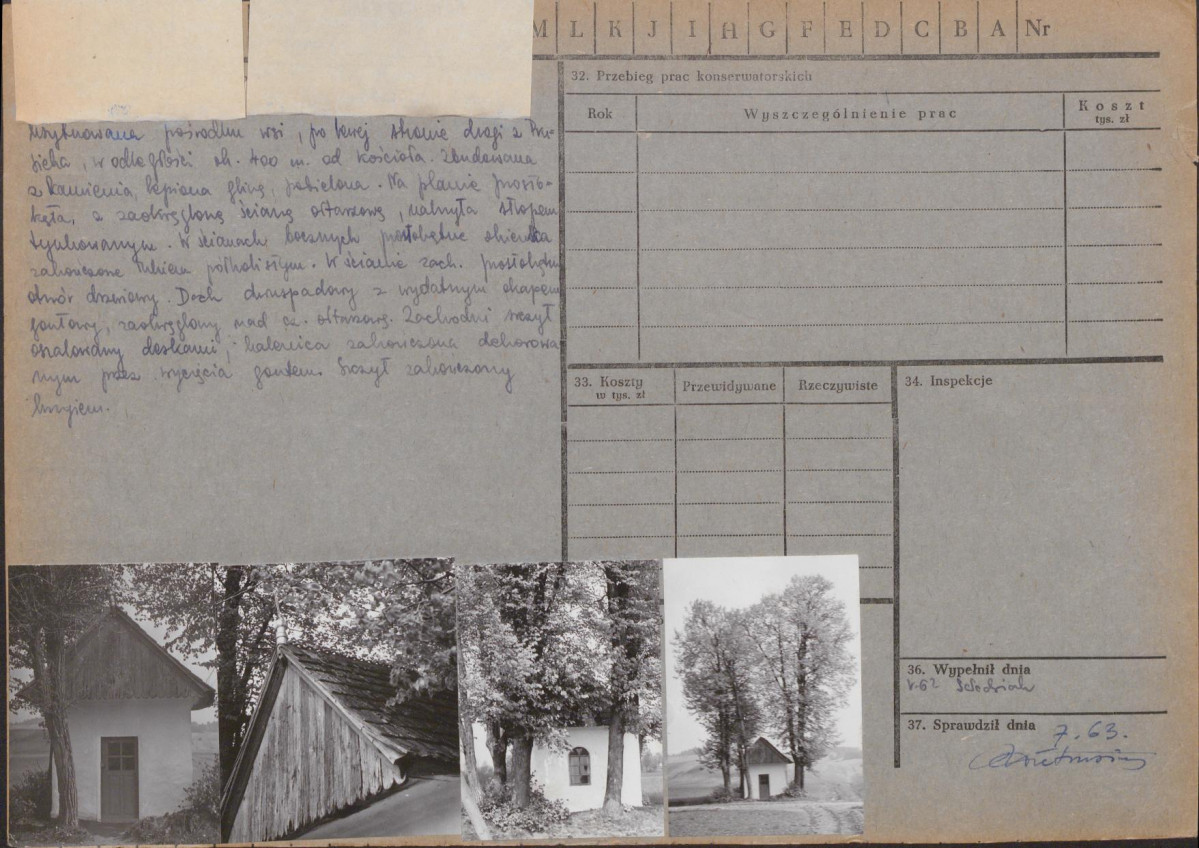 M L K J I H G F E D C B A Nr
usytuowana pośrodku wsi, po lewej stronie drogi z
w odległości ok. 400 m. od kościoła. Zbudowana
z kamienia, lepiona gliną, pobielona. Na planie prosto-
kąta, z zaokrągloną ścianą ołtarzową, nakryta stropem
tynkowanym. W ścianach bocznych prostokątne okienka
zakończone łukiem półkolistym. W ścianie zach. prostokątny
otwór drzwiowy. Dach dwuspadowy z wydatnym okapem
gontowy, zaokrąglony nad cz. ołtarzową. Zachodni szczyt
oszalowany deskami, kalenica zakończona dekorowa
nym przez wycięcia gontem. Szczyt zakończony
krzyżem.
32. Przebieg prac konserwatorskich
Rok Wyszczególnienie prac Koszt
tys. zł
33. Koszty
w tys. zł
Przewidywane Rzeczywiste
34. Inspekcje
36. Wypełnił dnia
37. Sprawdził dnia
7.63.